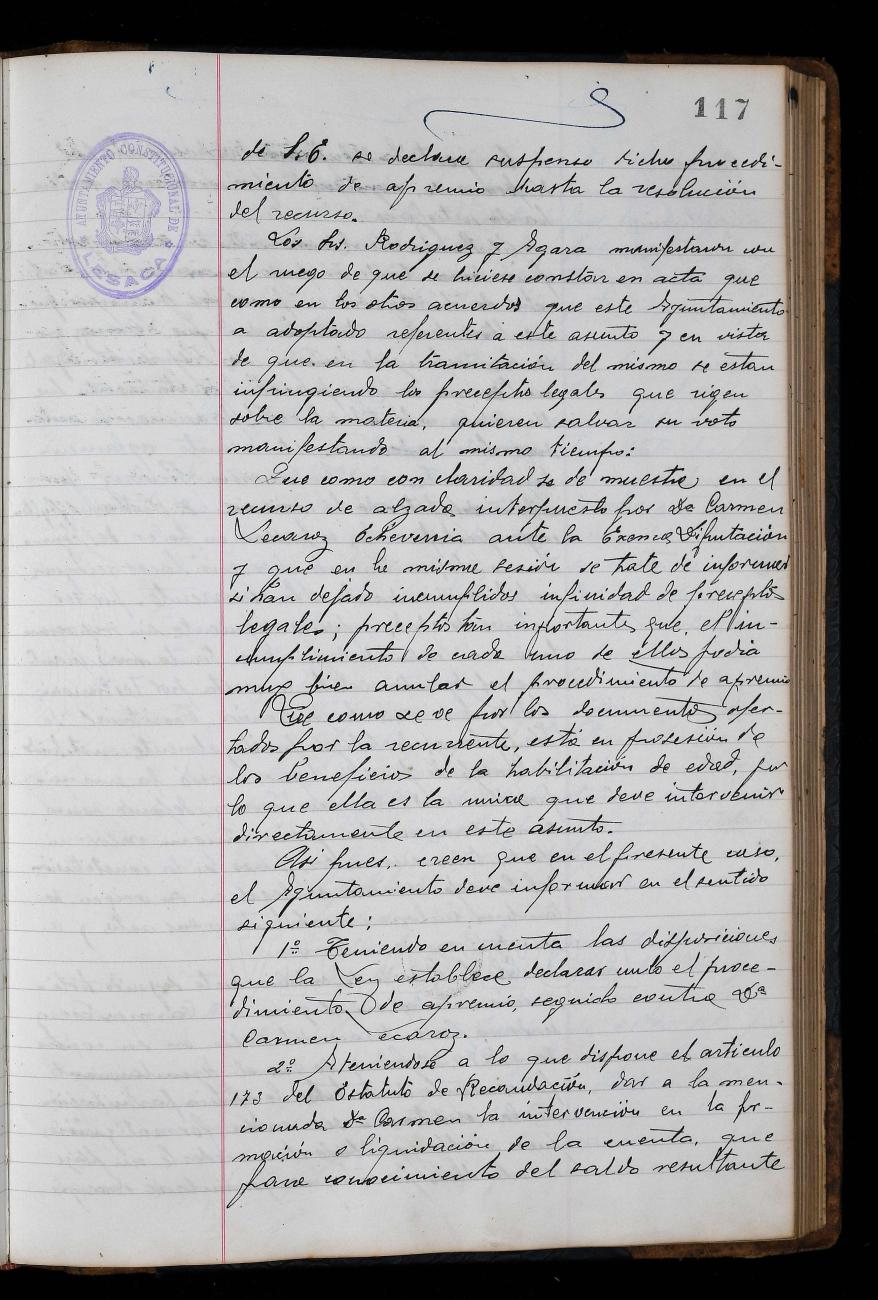 117
AYUNTAMIENTO CONSTITUCIONAL DE
LESACA
de S.E. se declare suspenso dicho procedi-
miento de apremio hasta la resolución
del recurso.
Los Srs. Rodriguez y Agara manifestaron con
el ruego de que se hiciese constar en acta que
como en los otros acuerdos que este Ayuntamiento
a adoptado referentes a este asunto y en vista
de que en la tramitación del mismo se estan
infringiendo los preceptos legales que rigen
sobre la materia, quieren salvar su voto
manifestando al mismo tiempo:
Que como con claridad se de muestra en el
recurso de alzada interpuesto por Dª Carmen
Lecaroz Echeverria ante la Excma Diputación
y que en la misma sesión se trate de informar
si han dejado incumplidos infinidad de preceptos
legales; preceptos tan importantes que, el in-
cumplimiento de cada uno de ellos podia
muy bien anular el procedimiento de apremio
Que como se ve por los documentos apor-
tados por la recurrente, está en posesión de
los beneficios de la habilitación de edad, por
lo que ella es la unica que deve intervenir
directamente en este asunto.
Asi pues, creen que en el presente caso,
el Ayuntamiento deve informar en el sentido
siguiente:
1º Teniendo en cuenta las disposiciones
que la Ley establece declarar nulo el proce-
dimiento de apremio, seguido contra Dª
Carmen Lecaroz.
2º Ateniendose a lo que dispone el articulo
173 del Estatuto de Recaudación, dar a la men-
cionada Dª Carmen la intervención en la for-
mación o liquidación de la cuenta, que
para conocimiento del saldo resultante